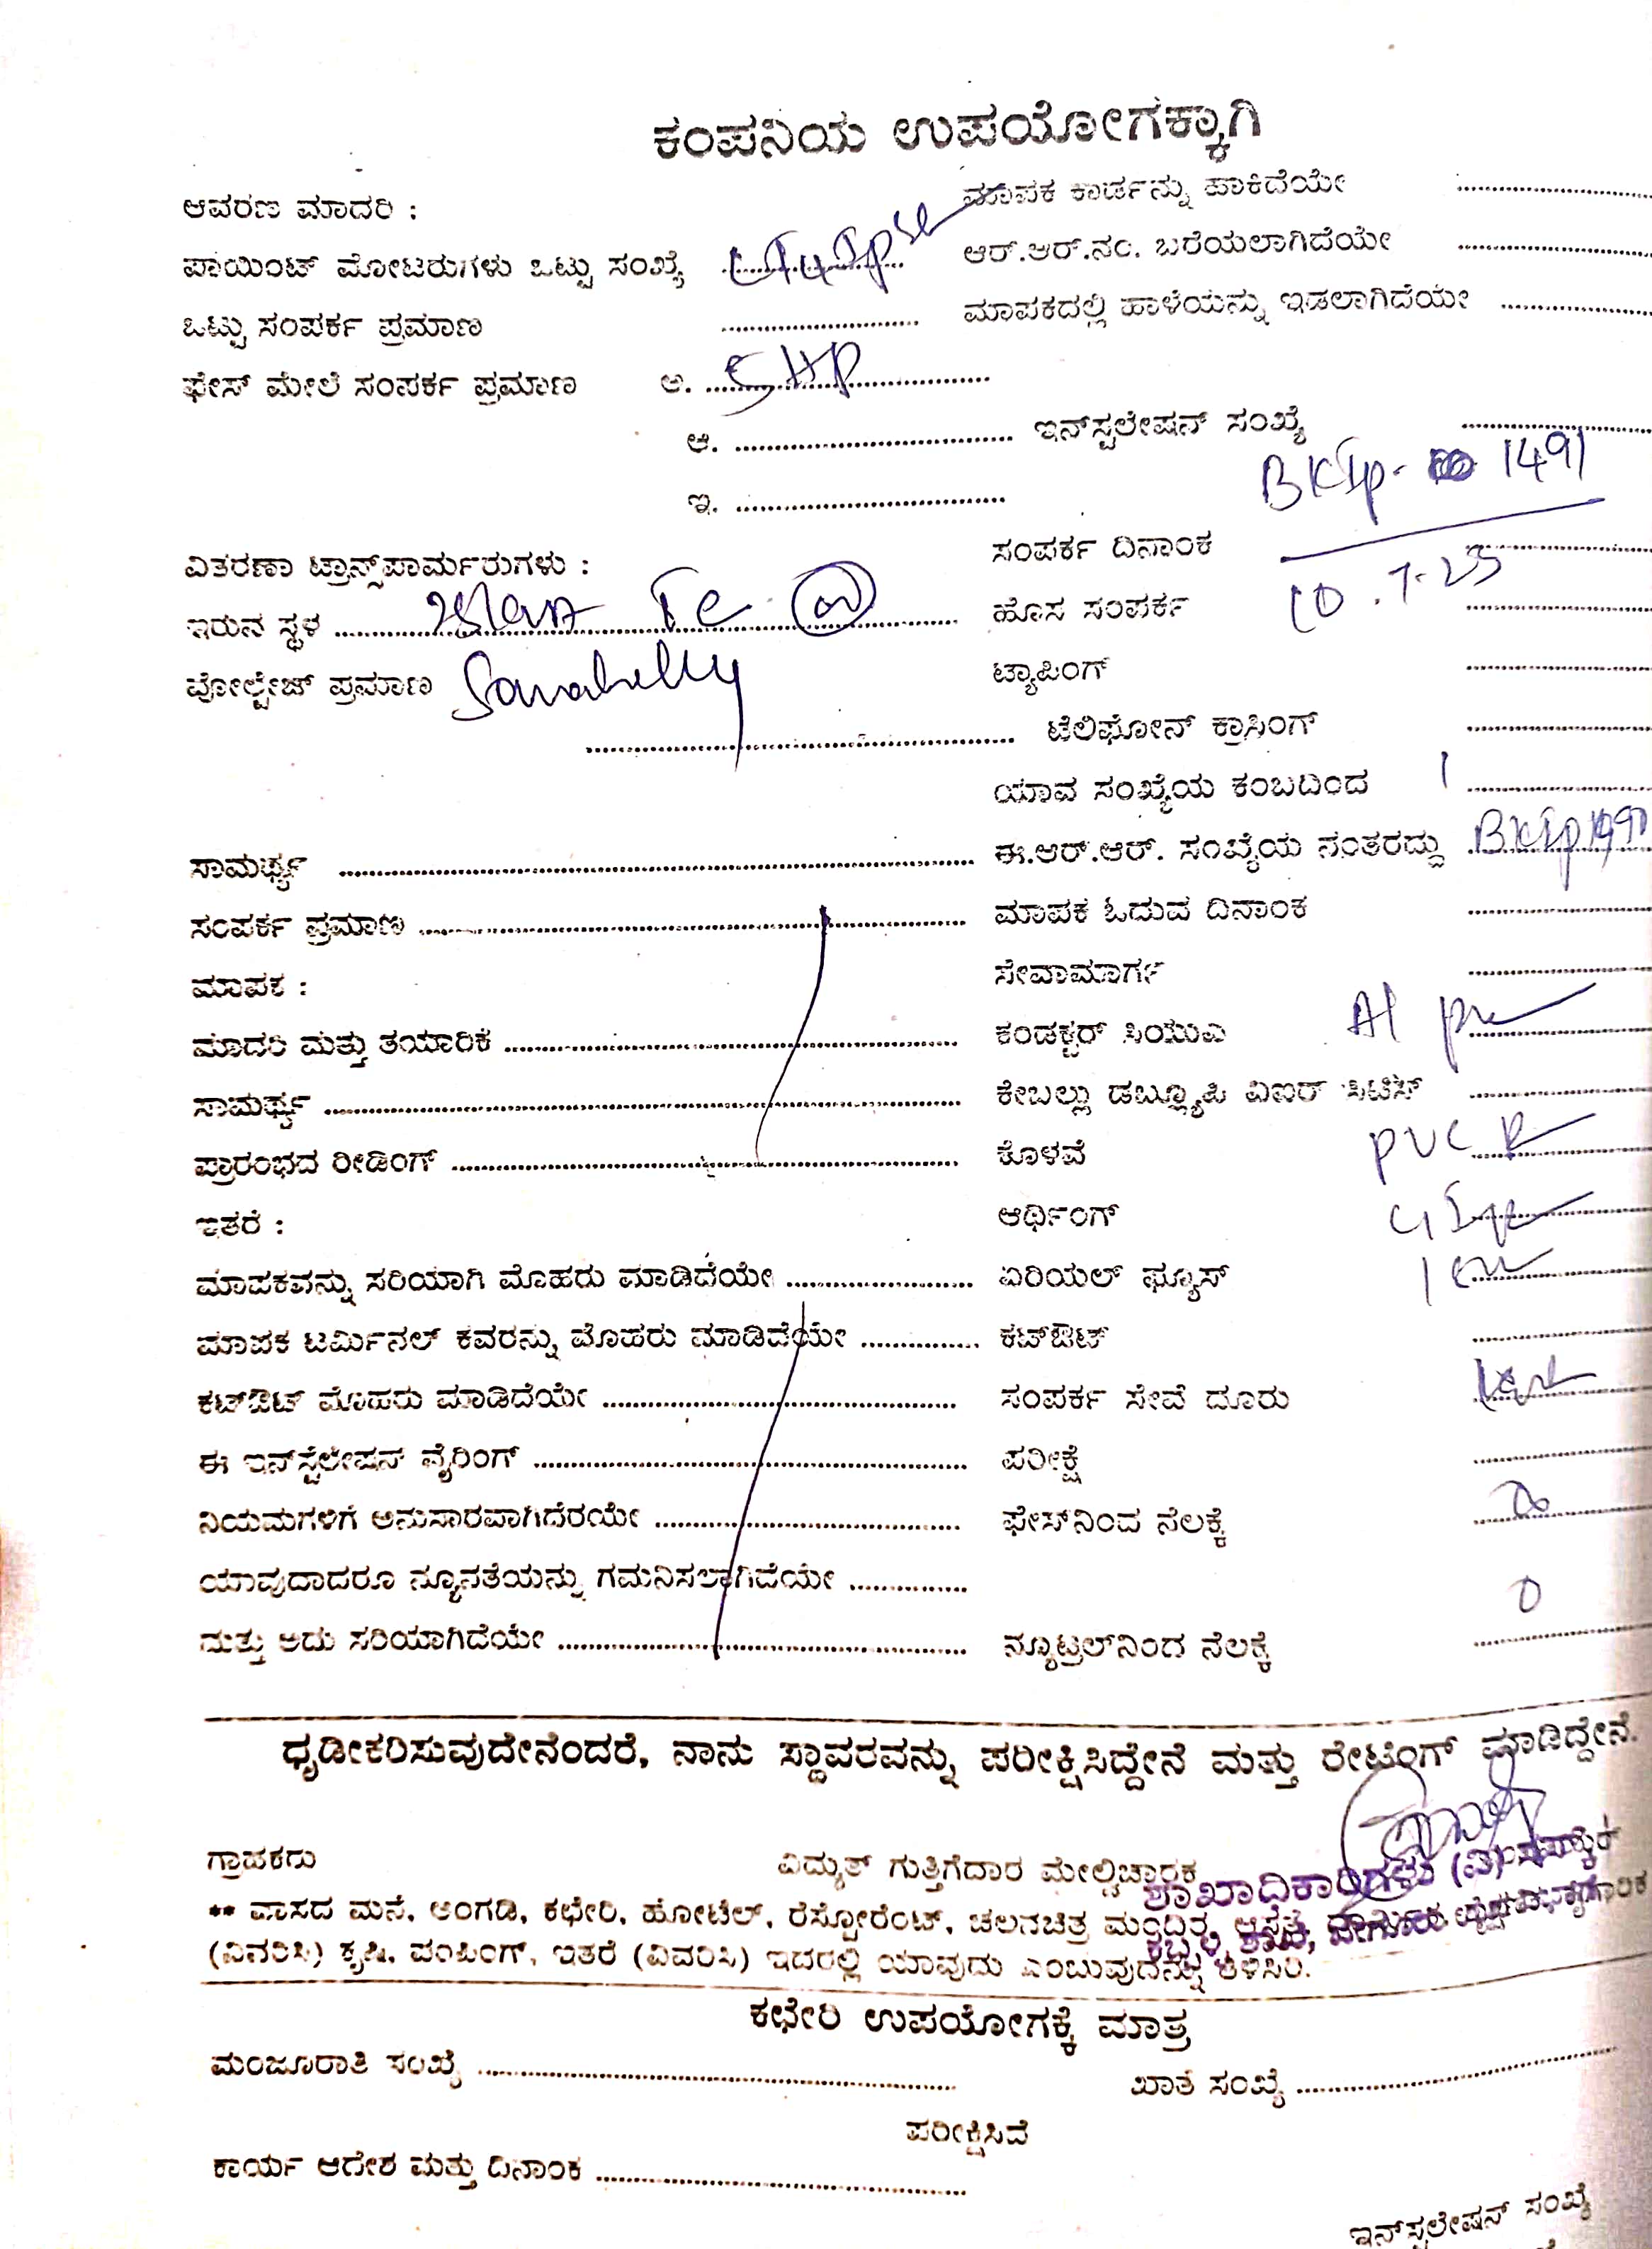 ಕಂಪನಿಯ ಉಪಯೋಗಕ್ಕಾಗಿ
ಆವರಣ ಮಾದರಿ :
ಮಾಪಕ ಕಾರ್ಡನ್ನು ಹಾಕಿದೆಯೇ
ಪಾಯಿಂಟ್ ಮೋಟರುಗಳು ಒಟ್ಟು ಸಂಖ್ಯೆ
ಆರ್.ಆರ್.ನಂ. ಬರೆಯಲಾಗಿದೆಯೇ
ಒಟ್ಟು ಸಂಪರ್ಕ ಪ್ರಮಾಣ
ಮಾಪಕದಲ್ಲಿ ಹಾಳೆಯನ್ನು ಇಡಲಾಗಿದೆಯೇ
ಫೇಸ್ ಮೇಲೆ ಸಂಪರ್ಕ ಪ್ರಮಾಣ ಅ. 5HP
ಆ. ಇನ್‌ಸ್ಟಲೇಷನ್ ಸಂಖ್ಯೆ
BKIp- 1491
ಇ.
ಸಂಪರ್ಕ ದಿನಾಂಕ 10.7.23
ವಿತರಣಾ ಟ್ರಾನ್ಸ್‌ಪಾರ್ಮರುಗಳು :
ಇರುವ ಸ್ಥಳ Tc
ಹೊಸ ಸಂಪರ್ಕ
ವೋಲ್ಟೇಜ್ ಪ್ರಮಾಣ
ಟ್ಯಾಪಿಂಗ್
ಟೆಲಿಫೋನ್ ಕ್ರಾಸಿಂಗ್
ಯಾವ ಸಂಖ್ಯೆಯ ಕಂಬದಿಂದ 1
ಸಾಮರ್ಥ್ಯ
ಈ.ಆರ್.ಆರ್. ಸಂಖ್ಯೆಯ ನಂತರದ್ದು BKIp1490
ಸಂಪರ್ಕ ಪ್ರಮಾಣ
ಮಾಪಕ ಓದುವ ದಿನಾಂಕ
ಮಾಪಕ :
ಸೇವಾಮಾರ್ಗ
ಮಾದರಿ ಮತ್ತು ತಯಾರಿಕೆ
ಕಂಡಕ್ಟರ್ ಸಿಯುಎ Al
ಸಾಮರ್ಥ್ಯ
ಕೇಬಲ್ಲು ಡಬ್ಲ್ಯೂಪಿ ವಿಐರ್ ಸಿಟಿಸ್
ಪ್ರಾರಂಭದ ರೀಡಿಂಗ್
ಕೊಳವೆ PVC
ಇತರೆ :
ಆರ್ಥಿಂಗ್
ಮಾಪಕವನ್ನು ಸರಿಯಾಗಿ ಮೊಹರು ಮಾಡಿದೆಯೇ
ಏರಿಯಲ್ ಫ್ಯೂಸ್
ಮಾಪಕ ಟರ್ಮಿನಲ್ ಕವರನ್ನು ಮೊಹರು ಮಾಡಿದೆಯೇ
ಕಟ್‌ಔಟ್
ಕಟ್‌ಔಟ್ ಮೊಹರು ಮಾಡಿದೆಯೇ
ಸಂಪರ್ಕ ಸೇವೆ ದೂರು
ಈ ಇನ್‌ಸ್ಟೆಲೇಷನ್ ವೈರಿಂಗ್
ಪರೀಕ್ಷೆ
ನಿಯಮಗಳಿಗೆ ಅನುಸಾರವಾಗಿದೆರಯೇ
ಫೇಸ್‌ನಿಂದ ನೆಲಕ್ಕೆ
ಯಾವುದಾದರೂ ನ್ಯೂನತೆಯನ್ನು ಗಮನಿಸಲಾಗಿದೆಯೇ
ಮತ್ತು ಅದು ಸರಿಯಾಗಿದೆಯೇ
ನ್ಯೂಟ್ರಲ್‌ನಿಂದ ನೆಲಕ್ಕೆ 0
ಧೃಡೀಕರಿಸುವುದೇನೆಂದರೆ, ನಾನು ಸ್ಥಾವರವನ್ನು ಪರೀಕ್ಷಿಸಿದ್ದೇನೆ ಮತ್ತು ರೇಟಿಂಗ್ ಮಾಡಿದ್ದೇನೆ.
ಗ್ರಾಹಕರು ವಿದ್ಯುತ್ ಗುತ್ತಿಗೆದಾರ ಮೇಲ್ವಿಚಾರಕ
ಶಾಖಾಧಿಕಾರಿಗಳು (ವಿ)
** ವಾಸದ ಮನೆ, ಅಂಗಡಿ, ಕಛೇರಿ, ಹೋಟೆಲ್, ರೆಸ್ಟೋರೆಂಟ್, ಚಲನಚಿತ್ರ ಮಂದಿರ, ಆಸ್ಪತ್ರೆ
(ವಿವರಿಸಿ) ಕೃಷಿ, ಪಂಪಿಂಗ್, ಇತರೆ (ವಿವರಿಸಿ) ಇದರಲ್ಲಿ ಯಾವುದು ಎಂಬುವುದನ್ನು ತಿಳಿಸಿರಿ.
ಕಛೇರಿ ಉಪಯೋಗಕ್ಕೆ ಮಾತ್ರ
ಮಂಜೂರಾತಿ ಸಂಖ್ಯೆ ಖಾತೆ ಸಂಖ್ಯೆ
ಪರೀಕ್ಷಿಸಿದೆ
ಕಾರ್ಯ ಆದೇಶ ಮತ್ತು ದಿನಾಂಕ
ಇನ್‌ಸ್ಟಲೇಷನ್ ಸಂಖ್ಯೆ